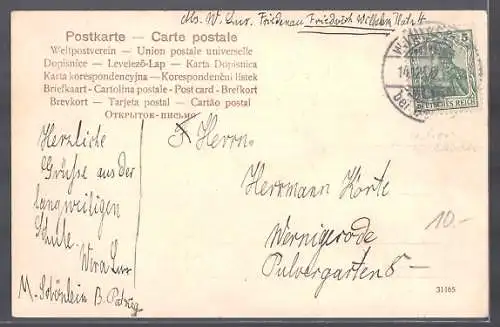 Abs. W. Lur. Friedenau Friedrich Wilhelm Platz 4
Postkarte — Carte postale
Weltpostverein – Union postale universelle
Dopisnice – Levelező-Lap – Karta Dopisnica
Karta korespondencyjna – Korespondenční lístek
Briefkaart – Cartolina postale – Post card – Brefkort
Brevkort – Tarjeta postal – Cartão postal
Открытое-письмо
5
DEUTSCHES REICH
Herzliche
Grüsse aus der
langweiligen
Schule
Wera Lur
M. Schönlein B.
Herrn
Herrmann Korte
Wernigerode
Pulvergarten 5
10.-
31165